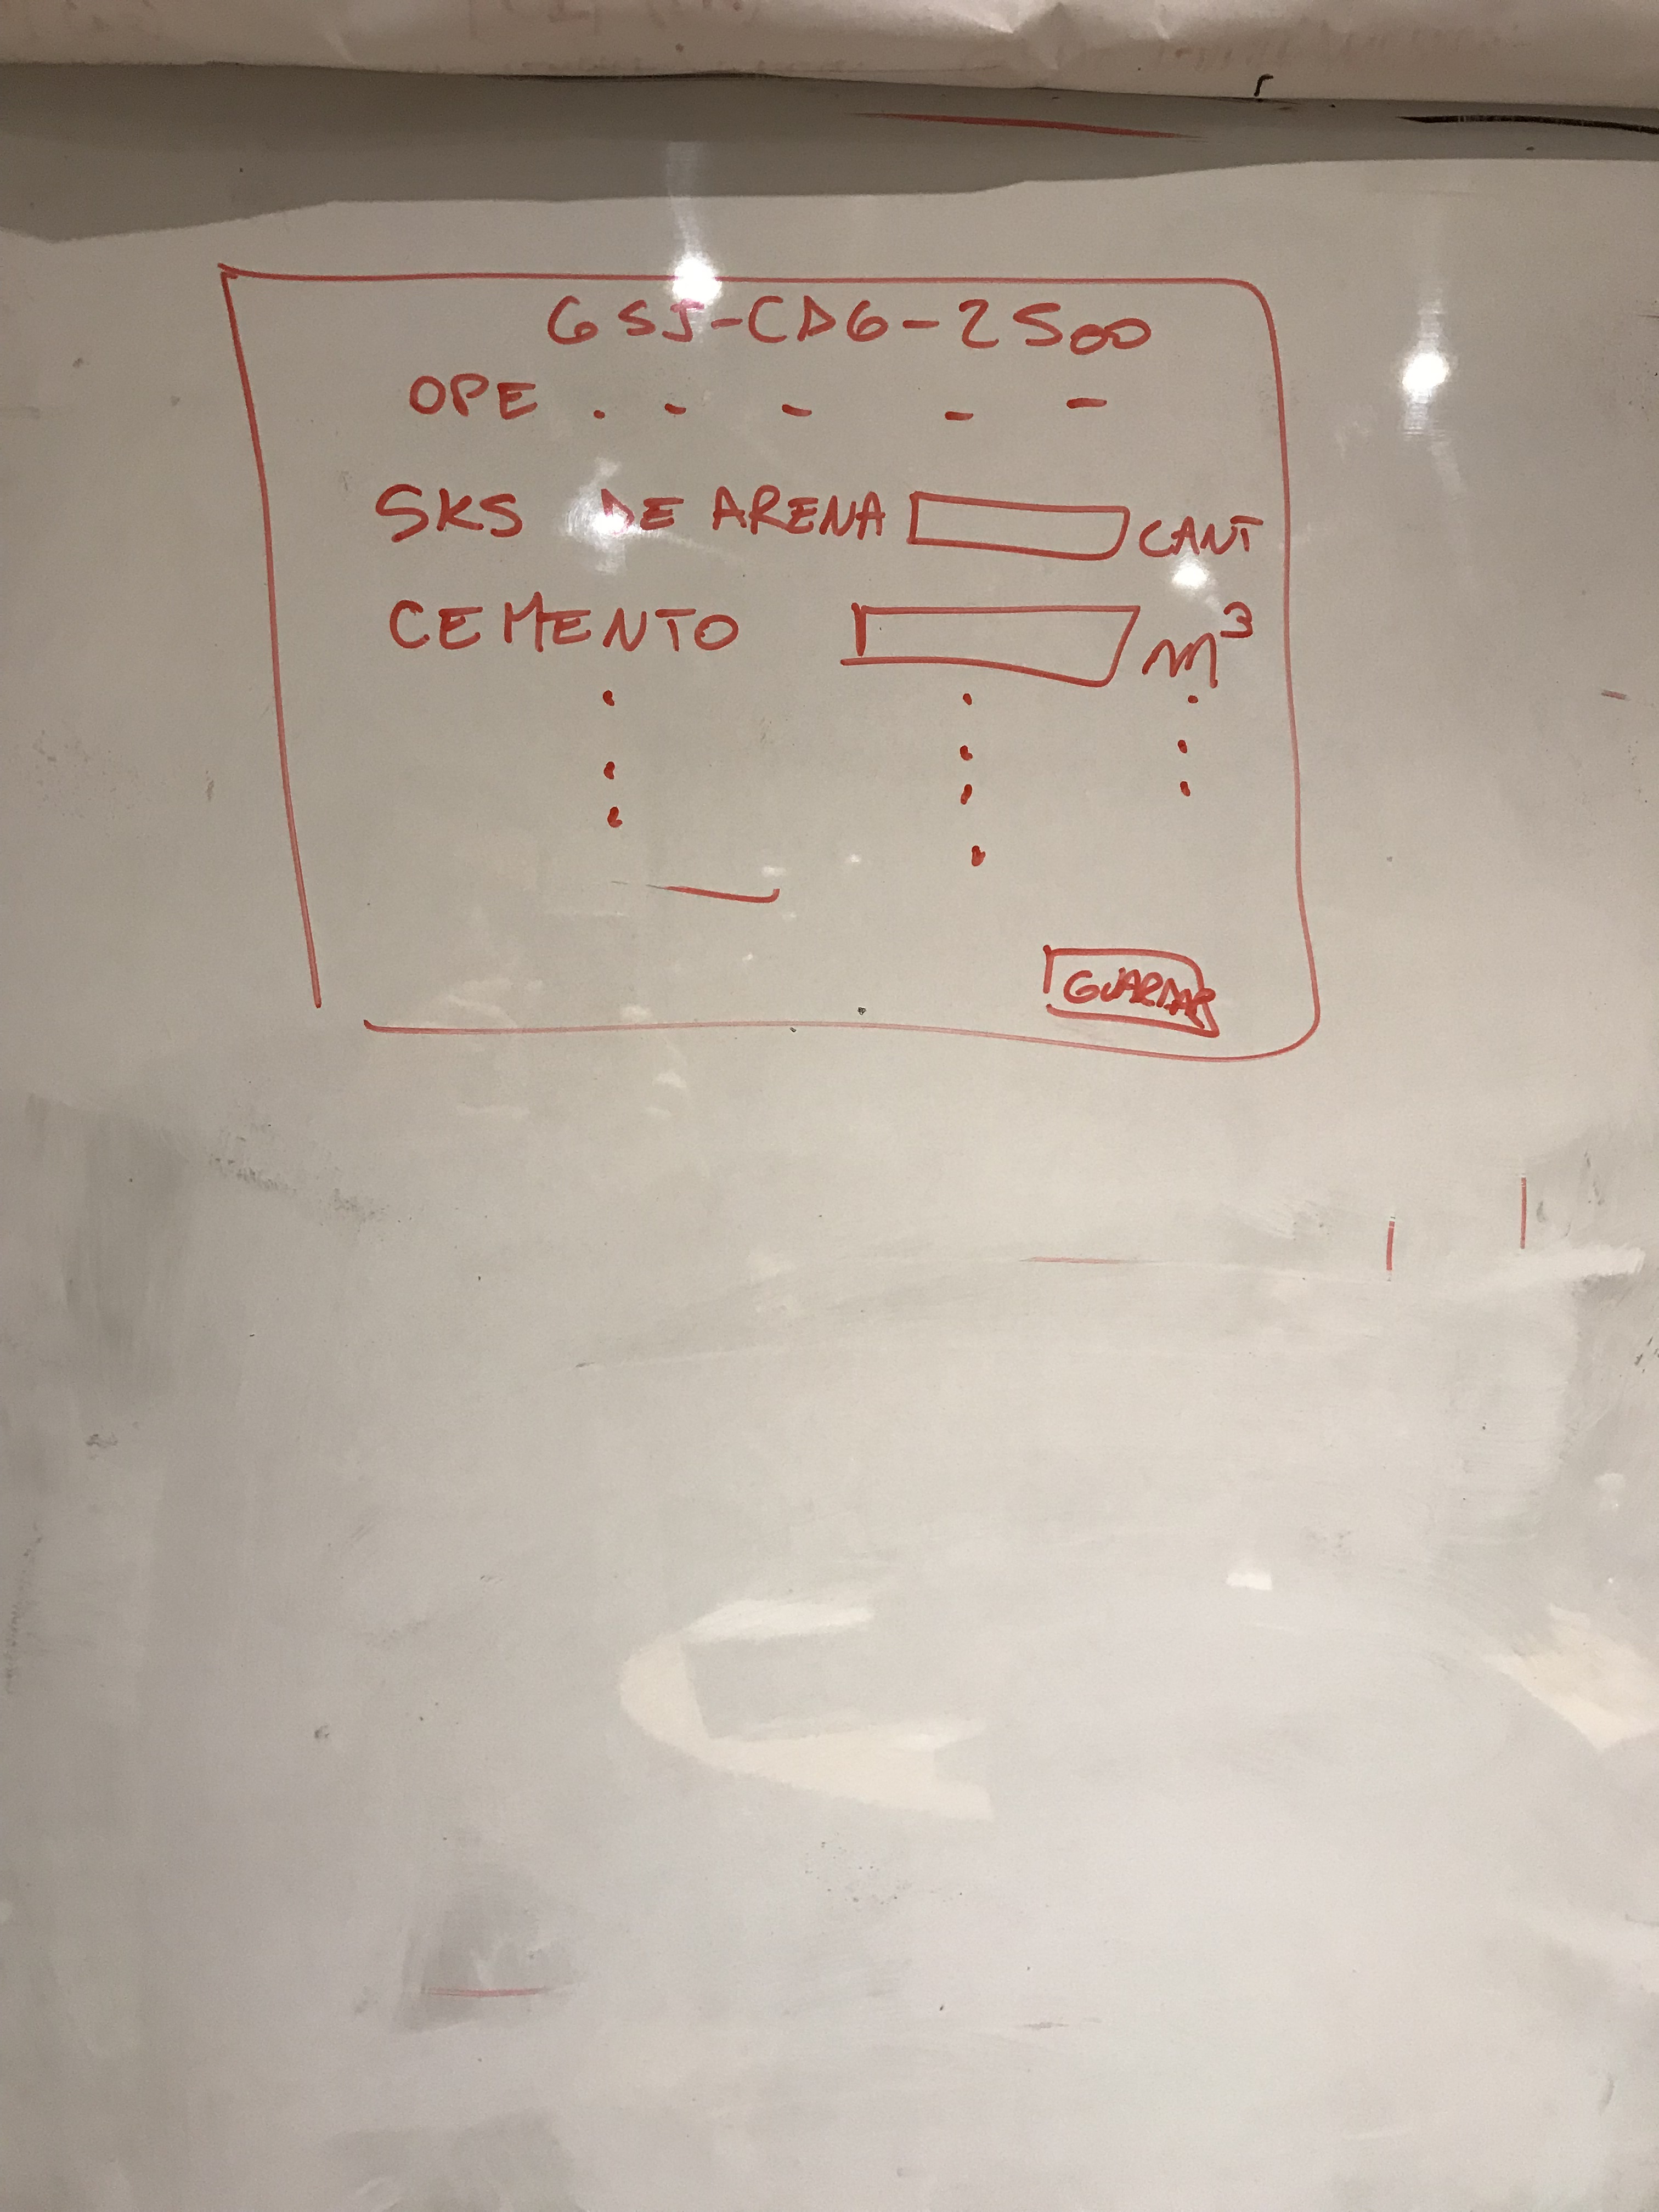 GSJ-CDG-2500
OPE . - - - -
SKS DE ARENA CANT
CEMENTO m³
GUARDAR